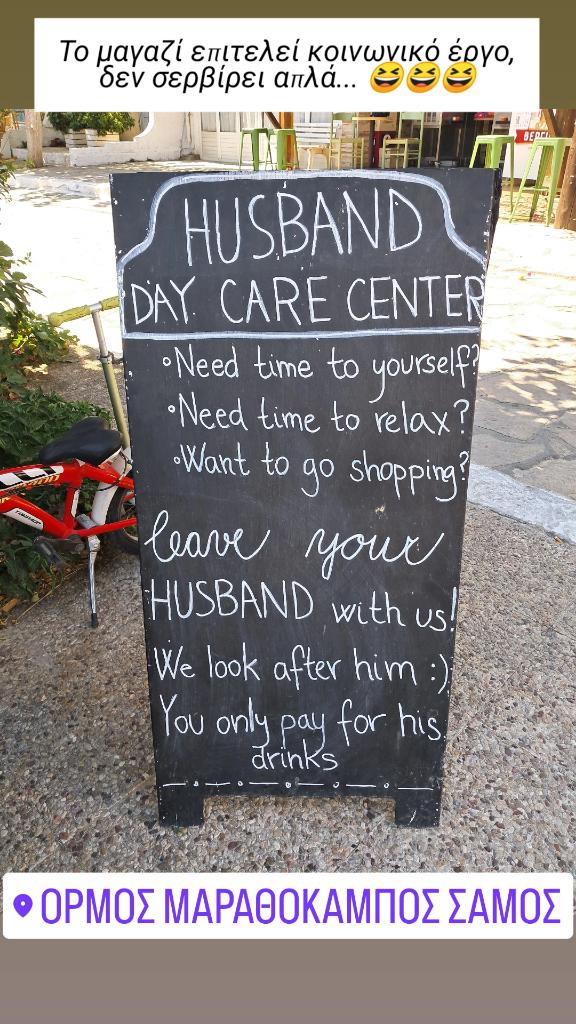 Το μαγαζί επιτελεί κοινωνικό έργο,
δεν σερβίρει απλά... 😆😆😆
HUSBAND
DAY CARE CENTER
•Need time to yourself?
•Need time to relax?
•Want to go shopping?
leave your
HUSBAND with us!
We look after him :)
You only pay for his
drinks
ΟΡΜΟΣ ΜΑΡΑΘΟΚΑΜΠΟΣ ΣΑΜΟΣ